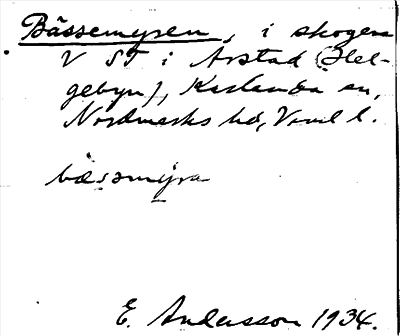 Bässemyren, i skogen
V ST i Årstad (Hel-
gebyn), Karlanda sn,
Nordmarks hd, Vrml l.
bæsmýra
E. Andersson 1934.